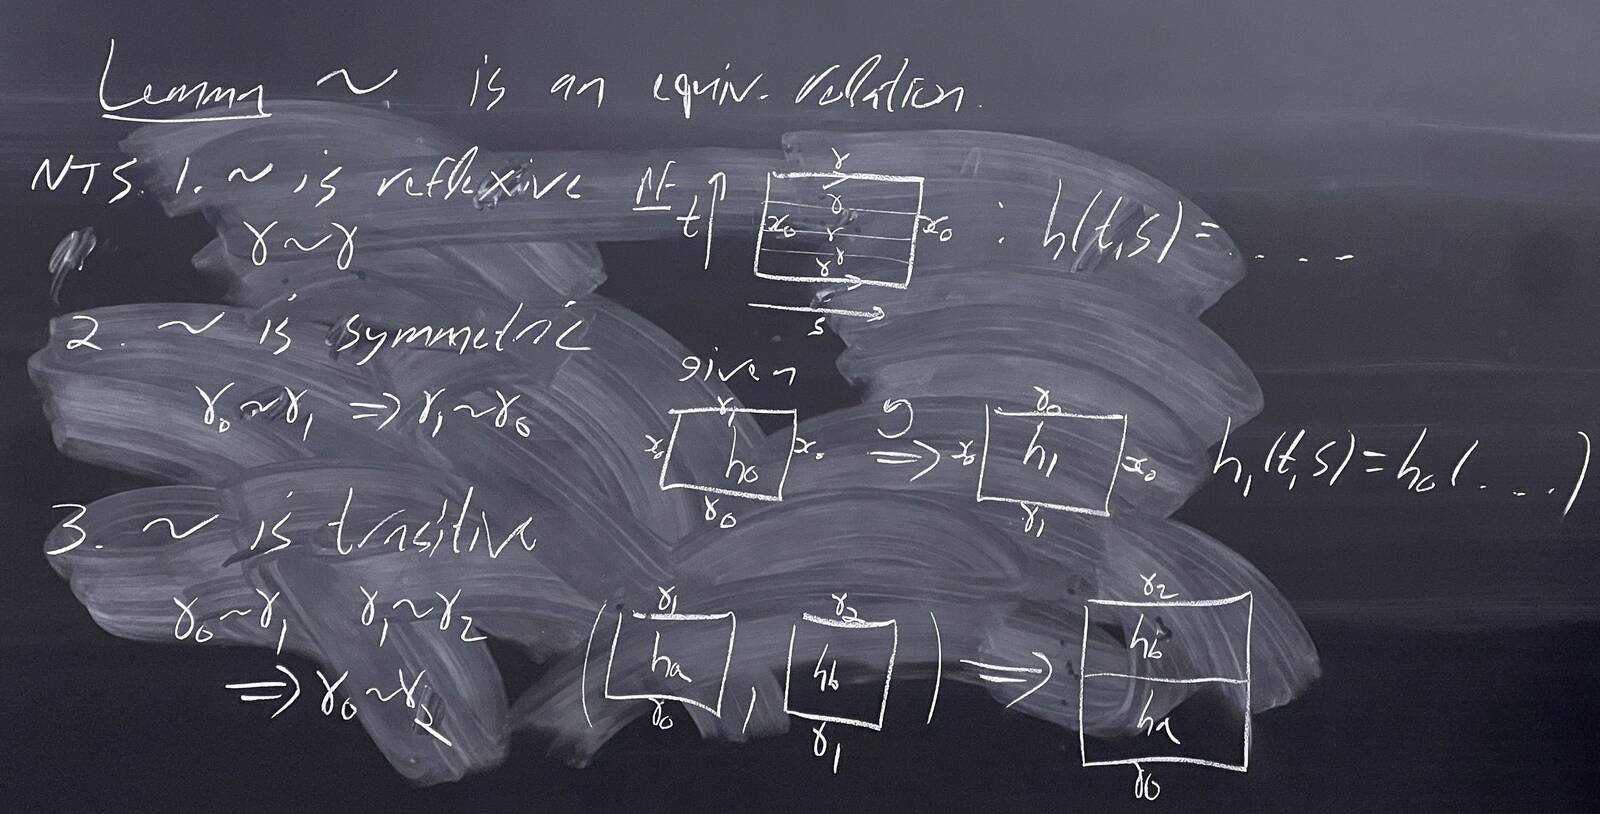 Lemma ~ is an equiv. relation.
NTS. 1. ~ is reflexive PF t γ γ γ γ γ x₀ x₀ s : h(t,s) = ....
γ~γ
2. ~ is symmetric
given
γ₀~γ₁ ⇒ γ₁~γ₀ γ₁ x₀ h₀ x₀ γ₀ ⇒ γ₀ x₀ h₁ x₀ γ₁ h₁(t,s) = h₀(....)
3. ~ is trnsitive
γ₀~γ₁ γ₁~γ₂ ( γ₁ ha γ₀ , γ₂ hb γ₁ ) ⇒ γ₂ hb ha γ₀
⇒ γ₀~γ₂